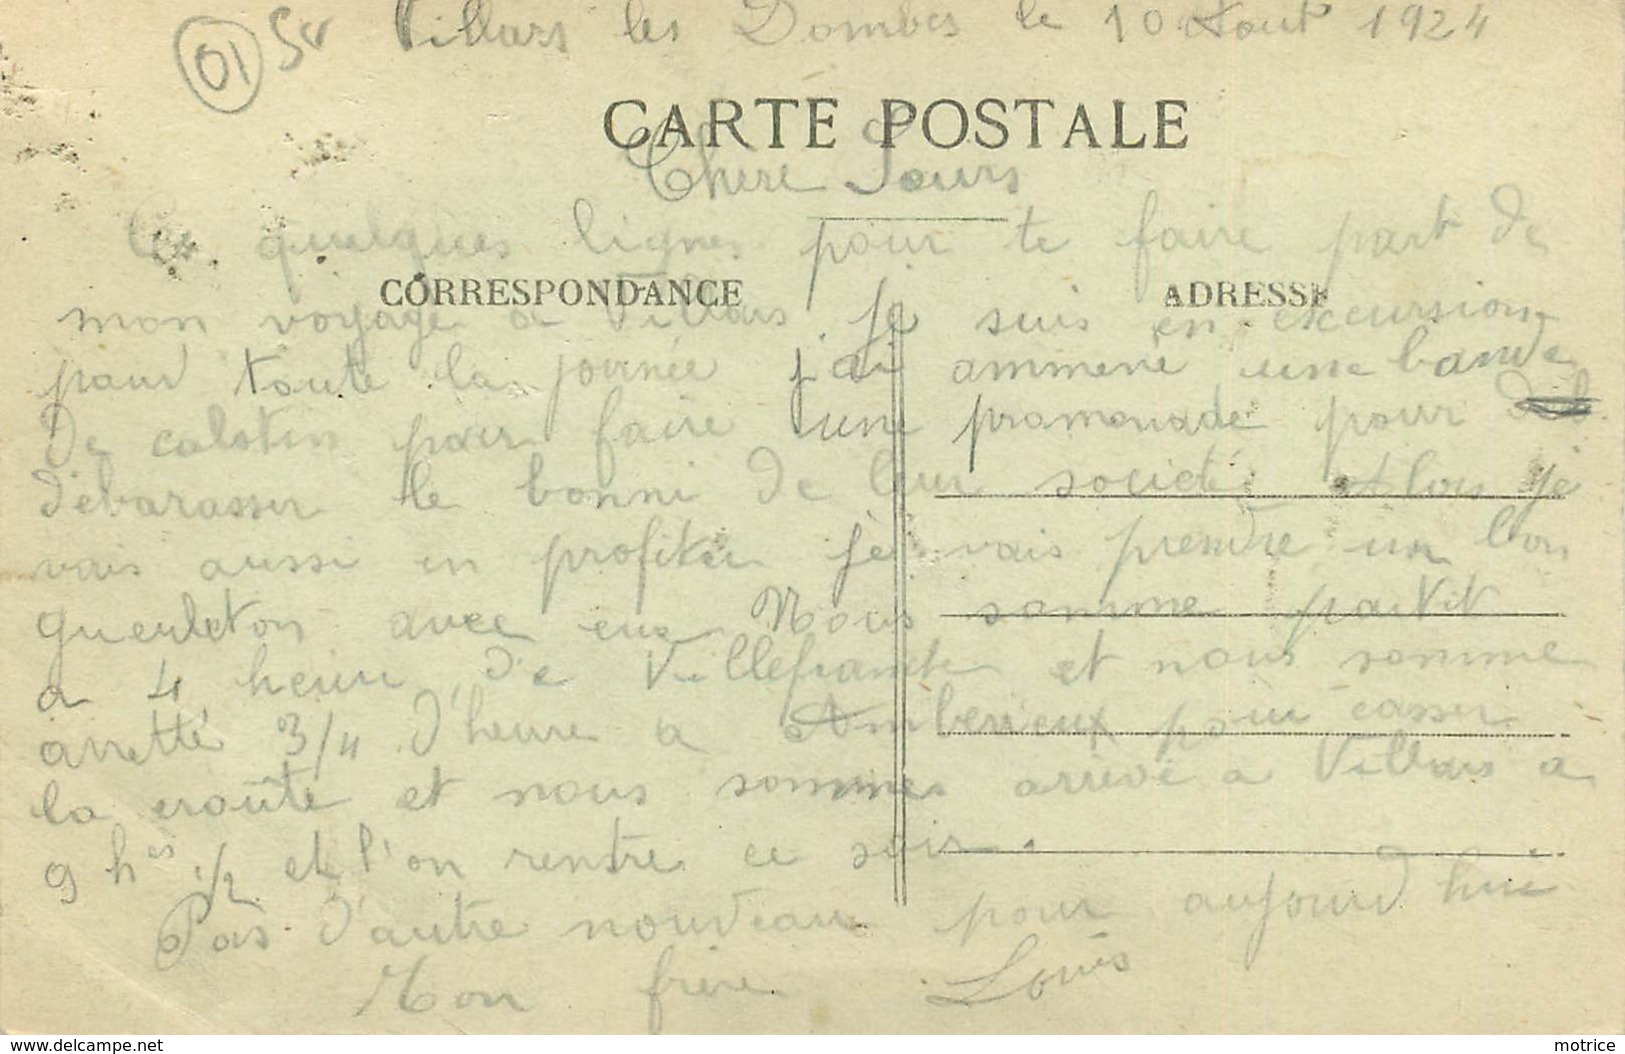 01 Sv Villars les Dombes le 10 Aout 1924
CARTE POSTALE
Chere Sours
Ces quelques lignes pour te faire part de
CORRESPONDANCE
ADRESSE
mon voyage a Villars. Je suis en excursion
pour toute la journée j'ai ammené une bande
de calotin pour faire une promenade pour
débarasser le bonni de leur societé Alors je
vais aussi en profiter je vais prendre un bon
gueuleton avec eux Nous somme partit
a 4 heur de Villefranche et nous somme
arretté 3/4 d'heure a Amberieux pour casser
la croûte et nous sommes arrivé a Villars a
9 hes 1/2 et l'on rentre ce soir.
Pas d'autre nouveau pour aujourd hui
Ton frère Louis
www.delcampe.net
motrice